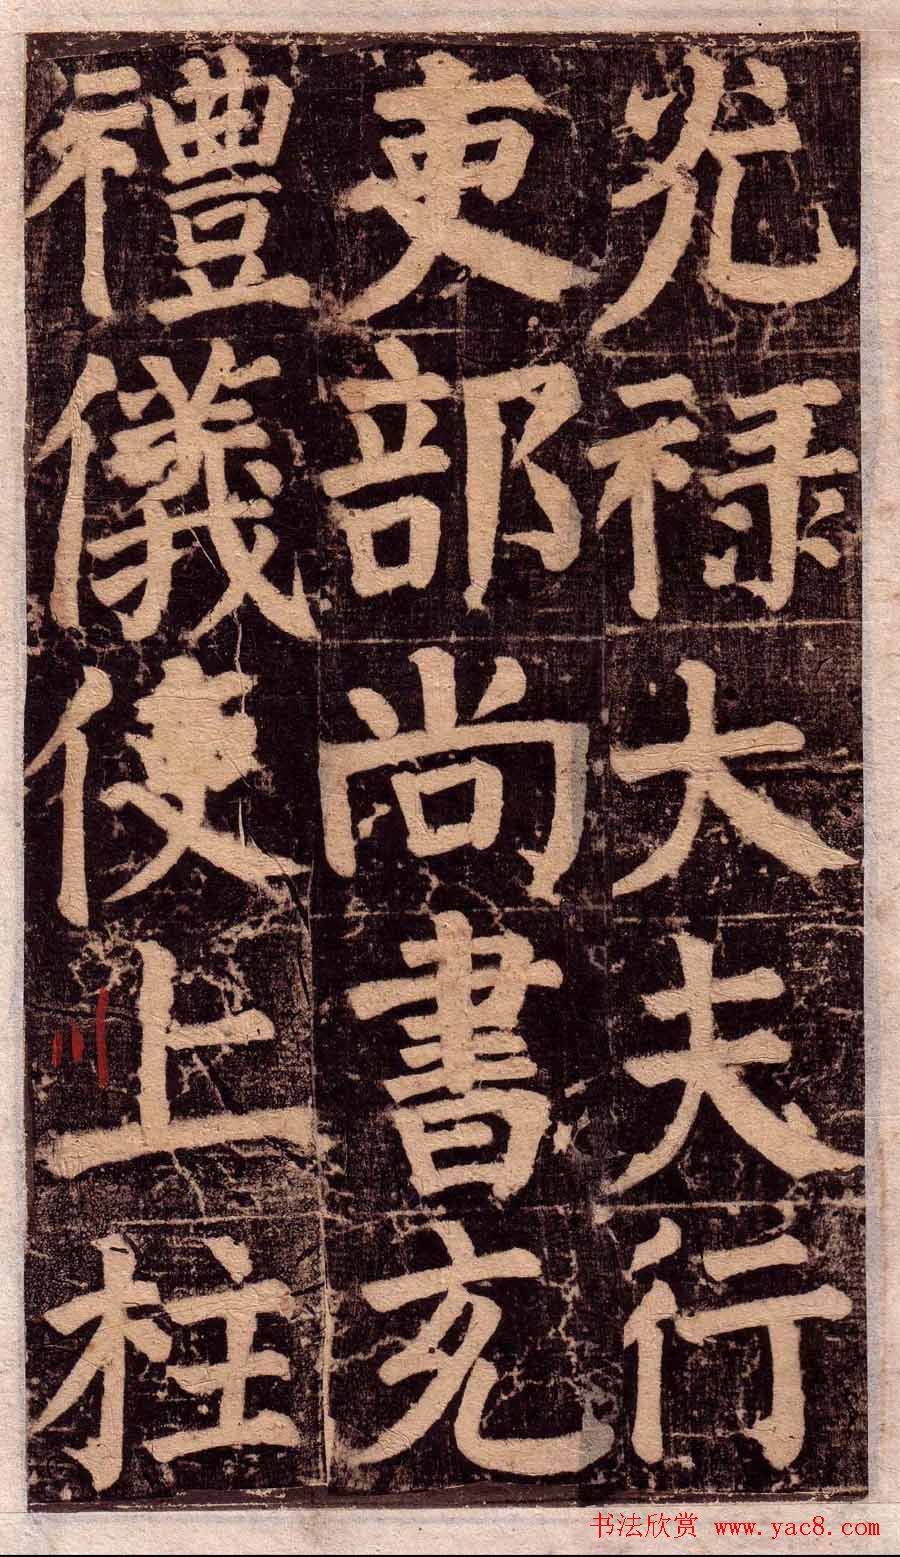 光禄大夫行
吏部尚書充
禮儀使上柱
书法欣赏 www.yac8.com